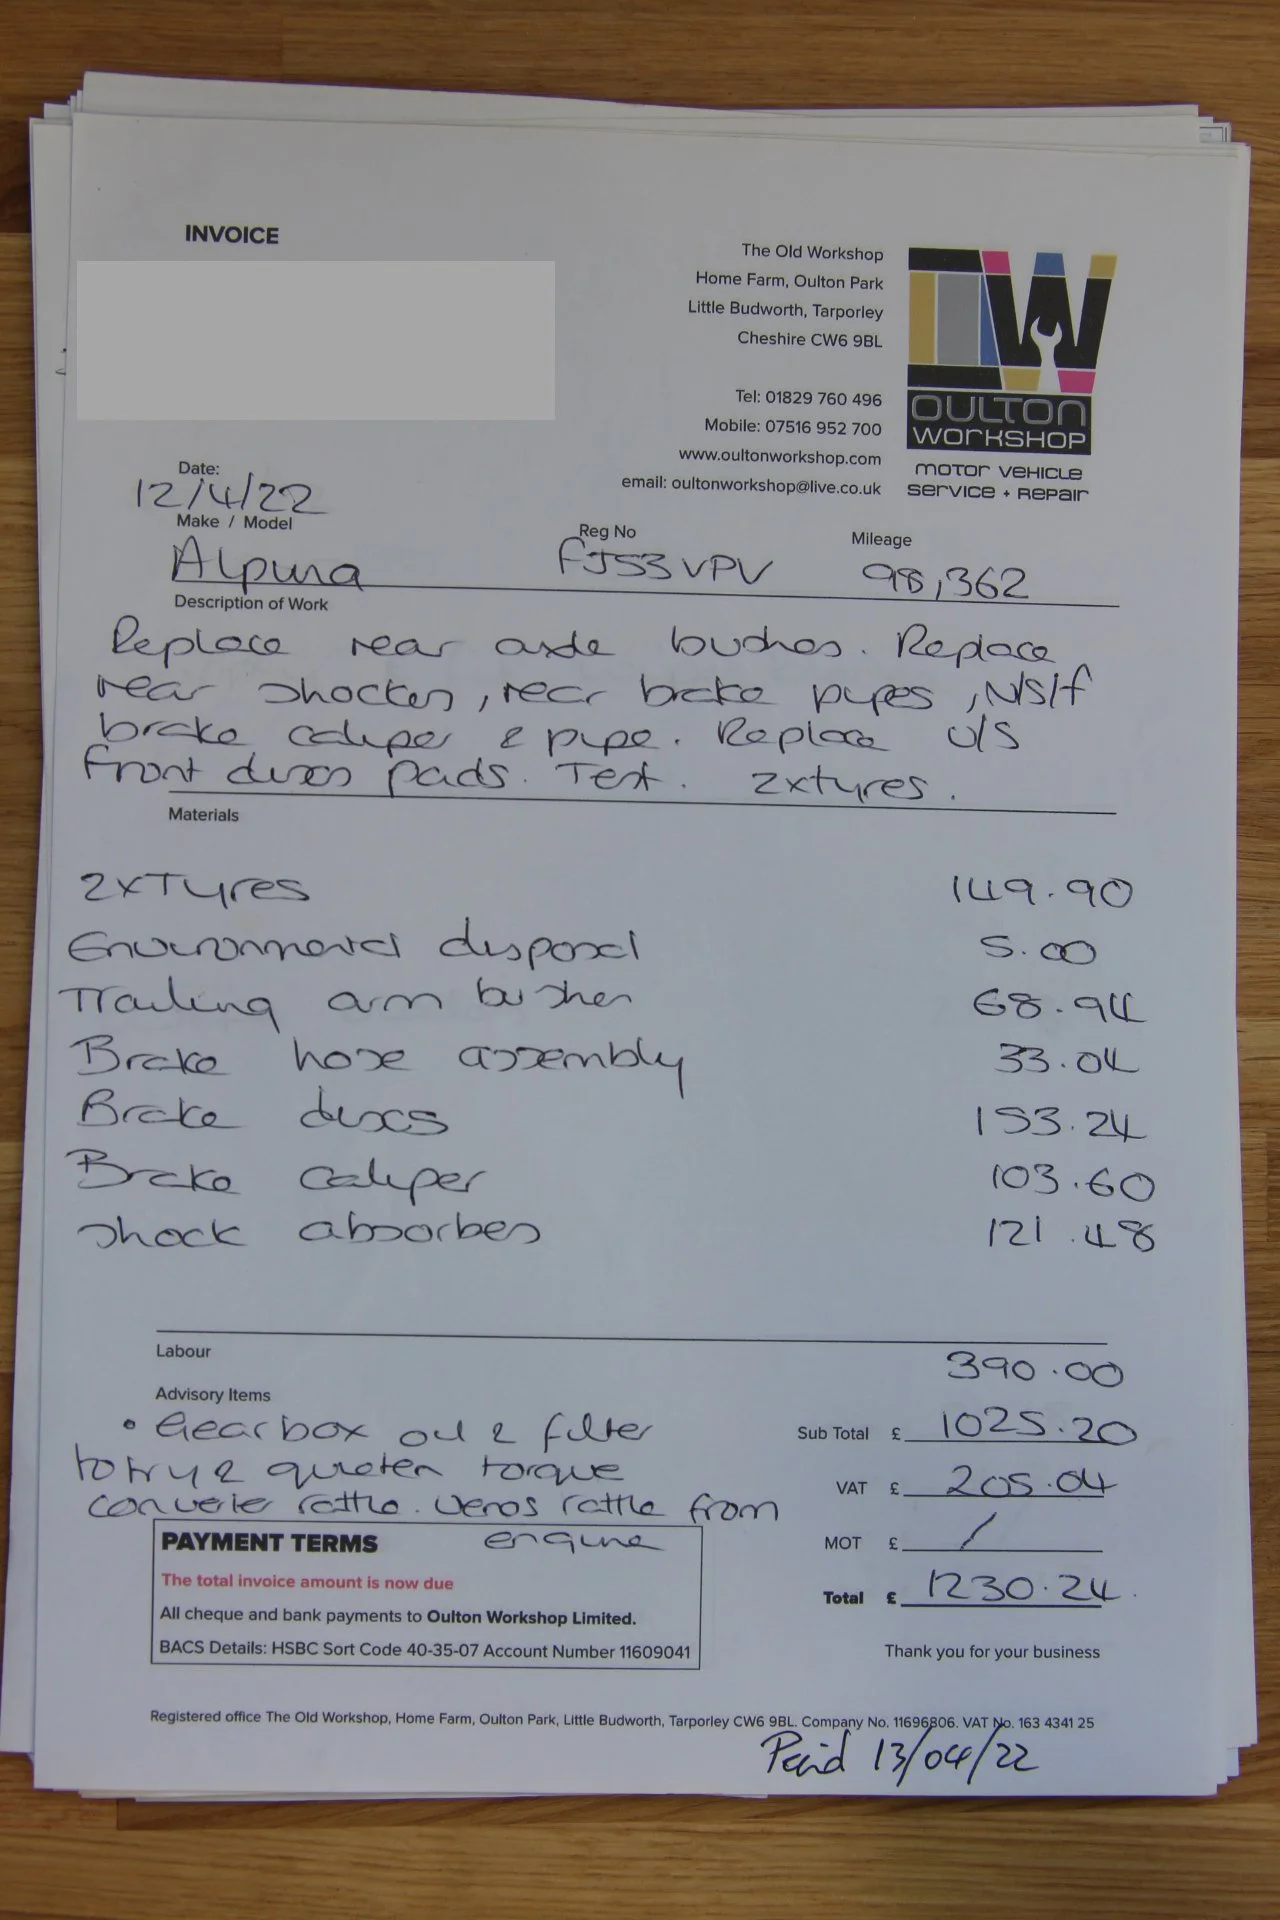 INVOICE
The Old Workshop
Home Farm, Oulton Park
Little Budworth, Tarporley
Cheshire CW6 9BL
Tel: 01829 760 496
Mobile: 07516 952 700
www.oultonworkshop.com
email: oultonworkshop@live.co.uk
OW
OULTON
WORKSHOP
MOTOR VEHICLE
SERVICE + REPAIR
Date:
12/4/22
Make / Model Reg No Mileage
Alpina FJ53VPV 98,362
Description of Work
Replace rear axle bushes. Replace
rear shockers, rear brake pipes, N/S/f
brake caliper & pipe. Replace
front discs pads. Test. 2xtyres.
Materials
2xTyres 149.90
Environmental disposal 5.00
Trailing arm bushes 68.94
Brake hose assembly 33.04
Brake discs 153.24
Brake caliper 103.60
Shock absorbes 121.48
Labour 390.00
Advisory Items
• Gearbox oil & filter
to try & quieten torque
converter rattle. Venos rattle from
engine
Sub Total £ 1025.20
VAT £ 205.04
MOT £ /
Total £ 1230.24
PAYMENT TERMS
The total invoice amount is now due
All cheque and bank payments to Oulton Workshop Limited.
BACS Details: HSBC Sort Code 40-35-07 Account Number 11609041
Thank you for your business
Registered office The Old Workshop, Home Farm, Oulton Park, Little Budworth, Tarporley CW6 9BL. Company No. 11696806. VAT No. 163 4341 25
Paid 13/04/22